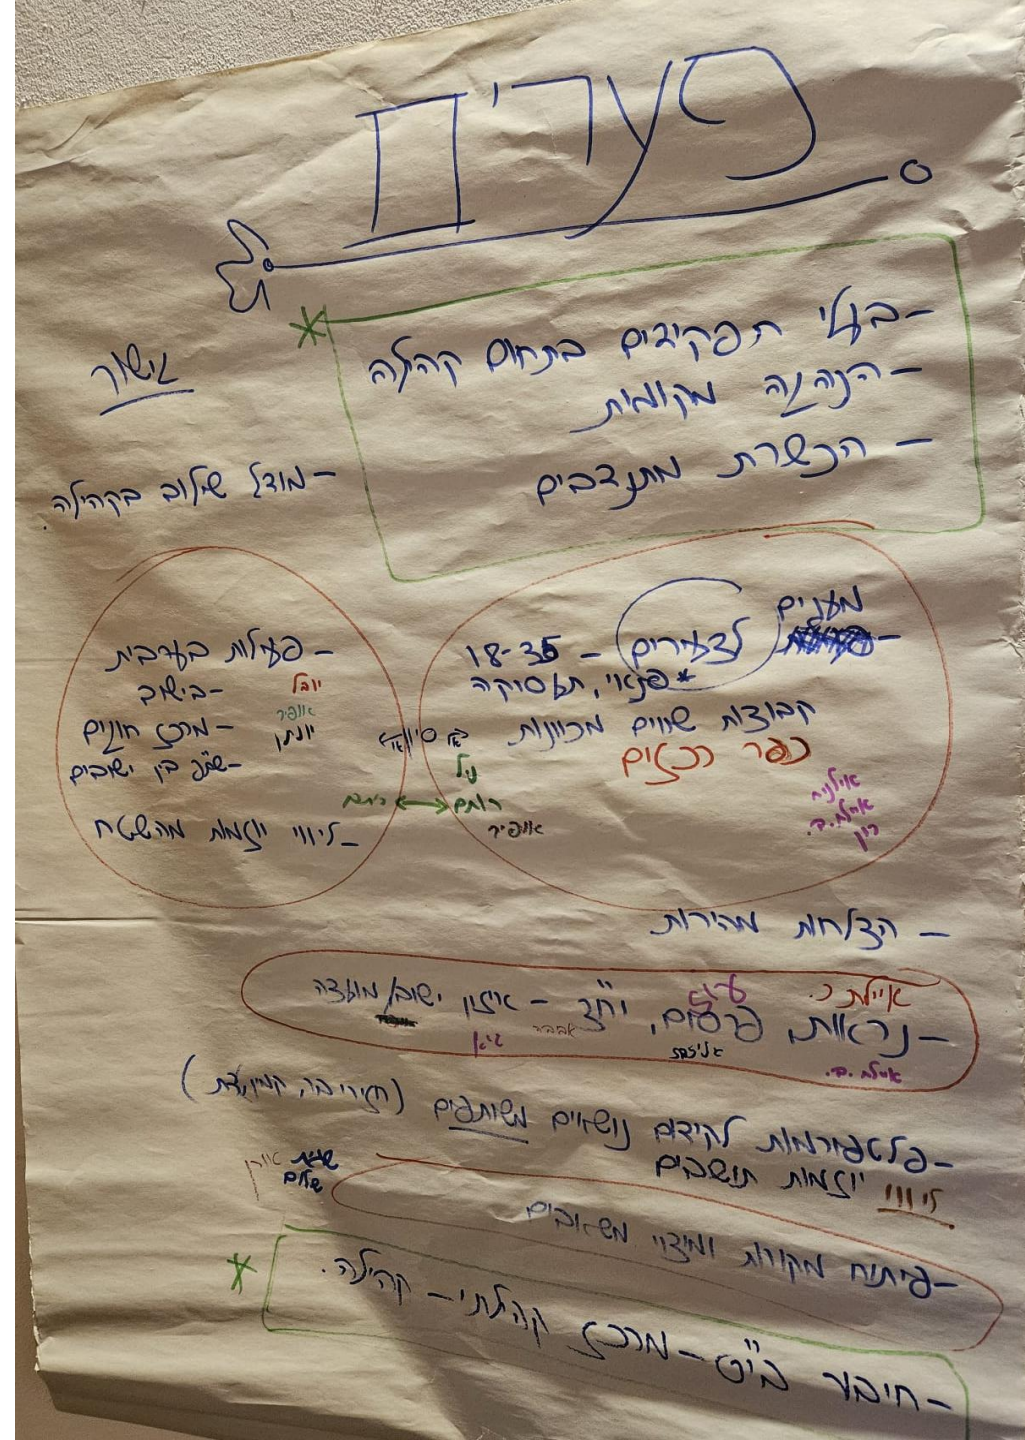 פערים
- בעלי תפקידים בתחום קהילה
- הנהגה מקומית
- הכשרת מתנדבים
גישור
- מודל שילוב בקהילה.
מענים
- לצעירים - 18-35
* פנאי, תעסוקה
קבוצות שווים מכוונות
כפר רכזים
אילנית
איילת.ב.
רון
גיל
רותם
אופיר
- פעילות בערבית
- בישוב
- מרכז חוגים
- שת"פ בין ישובים
- ליווי יוזמות מהשטח
יובל
אופיר
יונתן
- הצלחות מהירות
איילת כ.
- נראות, פרסום, יח"צ - איזון ישוב/מועצה
איילת.ב.
- פלטפורמות לקידום נושאים משותפים
ליווי יוזמות תושבים
- פיתוח מקורות ומיצוי משאבים
- חיבור בי"ס - מרכז קהילתי - קהילה.